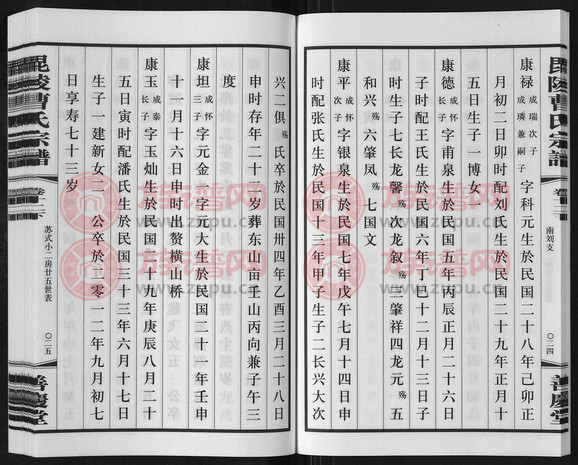 康禄 成瑞次子 成璘兼嗣子 字科元生於民国二十八年己卯正
月初二日卯时配刘氏生於民国二十九年正月十
五日生子一博女一
康德 成怀长子 字甫泉生於民国五年丙辰正月二十六日
子时配王氏生於民国六年丁巳十二月十三日子
时生子七长龙馨殇次龙叙殇三肇祥四龙元殇五
和兴殇六肇凤殇七国文
康平 成怀次子 字银泉生於民国七年戊午七月十四日申
时配张氏生於民国十三年甲子生子二长兴大次
兴二俱殇氏卒於民国卅四年乙酉三月二十八日
申时存年二十一岁葬东山亩壬山丙向兼子午三
度
康坦 成怀三子 字元金一字元大生於民国二十一年壬申
十一月十六日申时出赘横山桥
康玉 成泰长子 字玉灿生於民国二十九年庚辰八月二十
五日寅时配潘氏生於民国三十三年六月十七日
生子一建新女二 公卒於二零一二年九月初七
日享寿七十三岁
毘陵曹氏宗譜
卷十二
南刘支
〇二四
善慶堂
毘陵曹氏宗譜
卷十二
苏式小二房廿五世表
〇二五
善慶堂
族谱网
www.zupu.cn
族谱网
www.zupu.cn